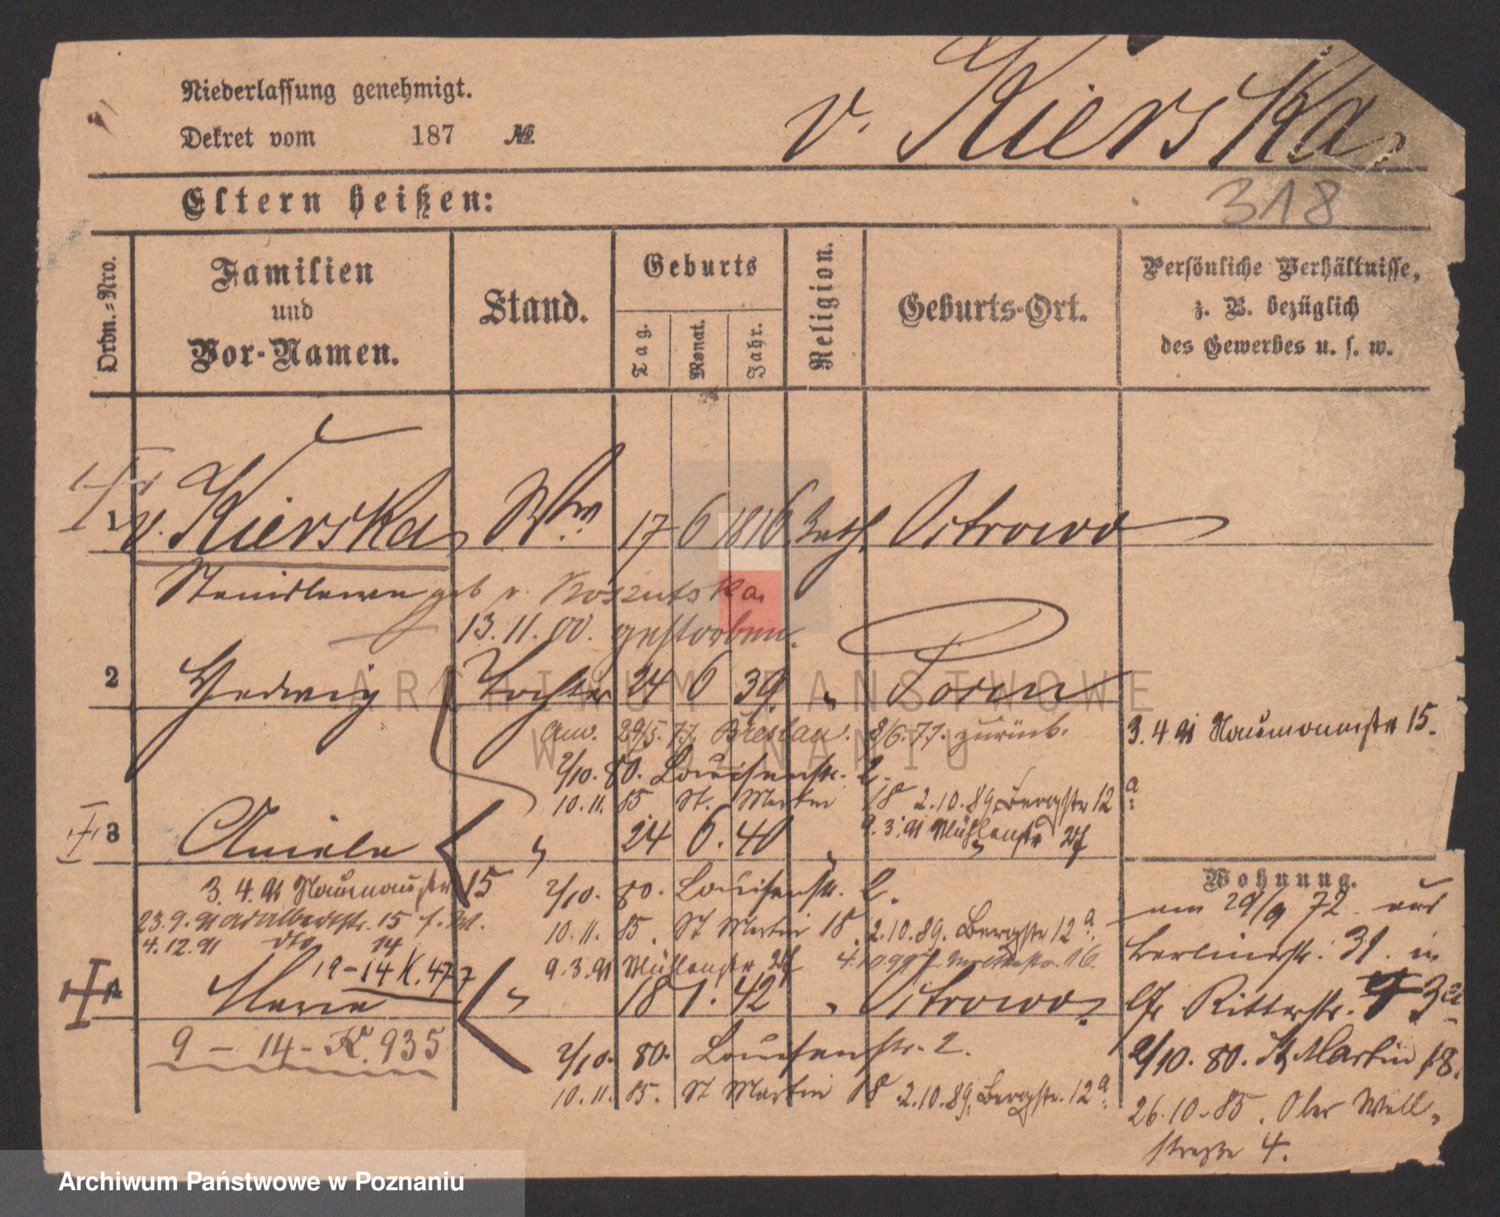 Niederlassung genehmigt.
Dekret vom 187 №
v. Kierska,
318
Eltern heißen:
Ordn.-Nro.
Familien
und
Vor-Namen.
Stand.
Geburts
Tag.
Monat.
Jahr.
Religion.
Geburts-Ort.
Persönliche Verhältnisse,
z. B. bezüglich
des Gewerbes u. s. w.
1 v. Kierska, Wwe 17 6 1816 kath. Ostrowo
geb v. Koszutska
13. 11. 00. gestorben.
2 Hedwig Tochter 24 6 39 „
29/5. 77. Breslau. 8/6. 77. zurück.
3. 4. 91 Naumannstr 15.
2/10. 80. Louisenstr. 2.
10. 11. 85 St. Martin 18 2. 10. 89 Bergstr 12 a
3 Aniela „ 24 6. 40 „
9. 3. 91 Mühlenstr
3. 4. 91 Naumannstr 15
2/10. 80. Louisenstr. 2.
23. 9. 91 15
10. 11. 85. St Martin 18. 2. 10. 89. Bergstr 12 a
4. 12. 91 dto 14
9. 3. 91 Mühlenstr
19-14 K. 477
4 Maria „ 18 1. 42 „ Ostrowo.
9 - 14 - K. 935
2/10. 80. Louisenstr. 2.
10. 11. 85. St Martin 18 2. 10. 89. Bergstr. 12 a
Wohnung.
am 29/9 72
Berlinerstr. 31. in
Ritterstr.
2/10. 80. St Martin 18.
26. 10. 85. Ober Wall-
straße 4.
ARCHIWUM PAŃSTWOWE
W POZNANIU
Archiwum Państwowe w Poznaniu